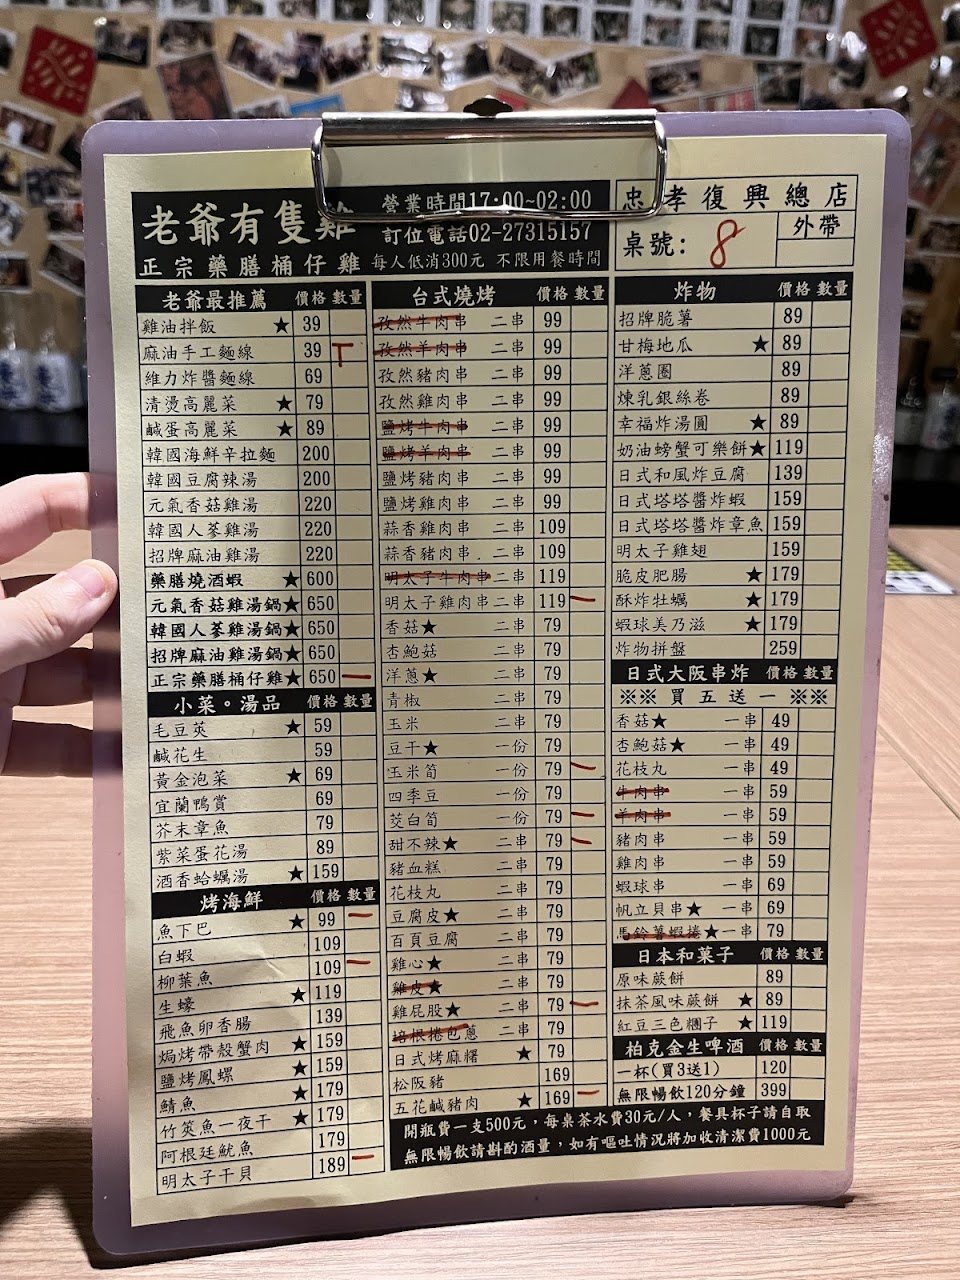 老爺有隻雞
正宗藥膳桶仔雞
營業時間17:00~02:00
訂位電話02-27315157
每人低消300元 不限用餐時間
忠孝復興總店
桌號: 8
外帶
老爺最推薦 價格 數量
雞油拌飯 ★ 39
麻油手工麵線 39 T
維力炸醬麵線 69
清燙高麗菜 ★ 79
鹹蛋高麗菜 ★ 89
韓國海鮮辛拉麵 200
韓國豆腐辣湯 200
元氣香菇雞湯 220
韓國人蔘雞湯 220
招牌麻油雞湯 220
藥膳燒酒蝦 ★ 600
元氣香菇雞湯鍋★ 650
韓國人蔘雞湯鍋★ 650
招牌麻油雞湯鍋★ 650
正宗藥膳桶仔雞★ 650 一
小菜。湯品 價格 數量
毛豆莢 ★ 59
鹹花生 59
黃金泡菜 ★ 69
宜蘭鴨賞 69
芥末章魚 79
紫菜蛋花湯 89
酒香蛤蠣湯 ★ 159
烤海鮮 價格 數量
魚下巴 ★ 99 一
白蝦 109
柳葉魚 109 一
生蠔 ★ 119
飛魚卵香腸 139
焗烤帶殼蟹肉 ★ 159
鹽烤鳳螺 ★ 159
鯖魚 ★ 179
竹筴魚一夜干 ★ 179
阿根廷魷魚 179
明太子干貝 189 一
台式燒烤 價格 數量
孜然牛肉串 二串 99
孜然羊肉串 二串 99
孜然豬肉串 二串 99
孜然雞肉串 二串 99
鹽烤牛肉串 二串 99
鹽烤羊肉串 二串 99
鹽烤豬肉串 二串 99
鹽烤雞肉串 二串 99
蒜香雞肉串 二串 109
蒜香豬肉串 二串 109
明太子牛肉串 二串 119
明太子雞肉串 二串 119 一
香菇★ 二串 79
杏鮑菇 二串 79
洋蔥★ 二串 79
青椒 二串 79
玉米 二串 79
豆干★ 一份 79
玉米筍 一份 79 一
四季豆 一份 79
茭白筍 一份 79 一
甜不辣★ 二串 79 一
豬血糕 二串 79
花枝丸 二串 79
豆腐皮★ 二串 79
百頁豆腐 二串 79
雞心★ 二串 79
雞皮★ 二串 79
雞屁股★ 二串 79 一
培根捲包蔥 二串 79
日式烤麻糬 ★ 79
松阪豬 169
五花鹹豬肉 ★ 169 一
炸物 價格 數量
招牌脆薯 89
甘梅地瓜 ★ 89
洋蔥圈 89
煉乳銀絲卷 89
幸福炸湯圓 ★ 89
奶油螃蟹可樂餅★ 119
日式和風炸豆腐 139
日式塔塔醬炸蝦 159
日式塔塔醬炸章魚 159
明太子雞翅 159
脆皮肥腸 ★ 179
酥炸牡蠣 ★ 179
蝦球美乃滋 ★ 179
炸物拼盤 259
日式大阪串炸 價格 數量
※※ 買五送一 ※※
香菇★ 一串 49
杏鮑菇★ 一串 49
花枝丸 一串 49
牛肉串 一串 59
羊肉串 一串 59
豬肉串 一串 59
雞肉串 一串 59
蝦球串 一串 69
帆立貝串★ 一串 69
馬鈴薯蝦捲★ 一串 79
日本和菓子 價格 數量
原味蕨餅 89
抹茶風味蕨餅 ★ 89
紅豆三色糰子 ★ 119
柏克金生啤酒 價格 數量
一杯(買3送1) 120
無限暢飲120分鐘 399
開瓶費一支500元，每桌茶水費30元/人，餐具杯子請自取
無限暢飲請斟酌酒量，如有嘔吐情況將加收清潔費1000元